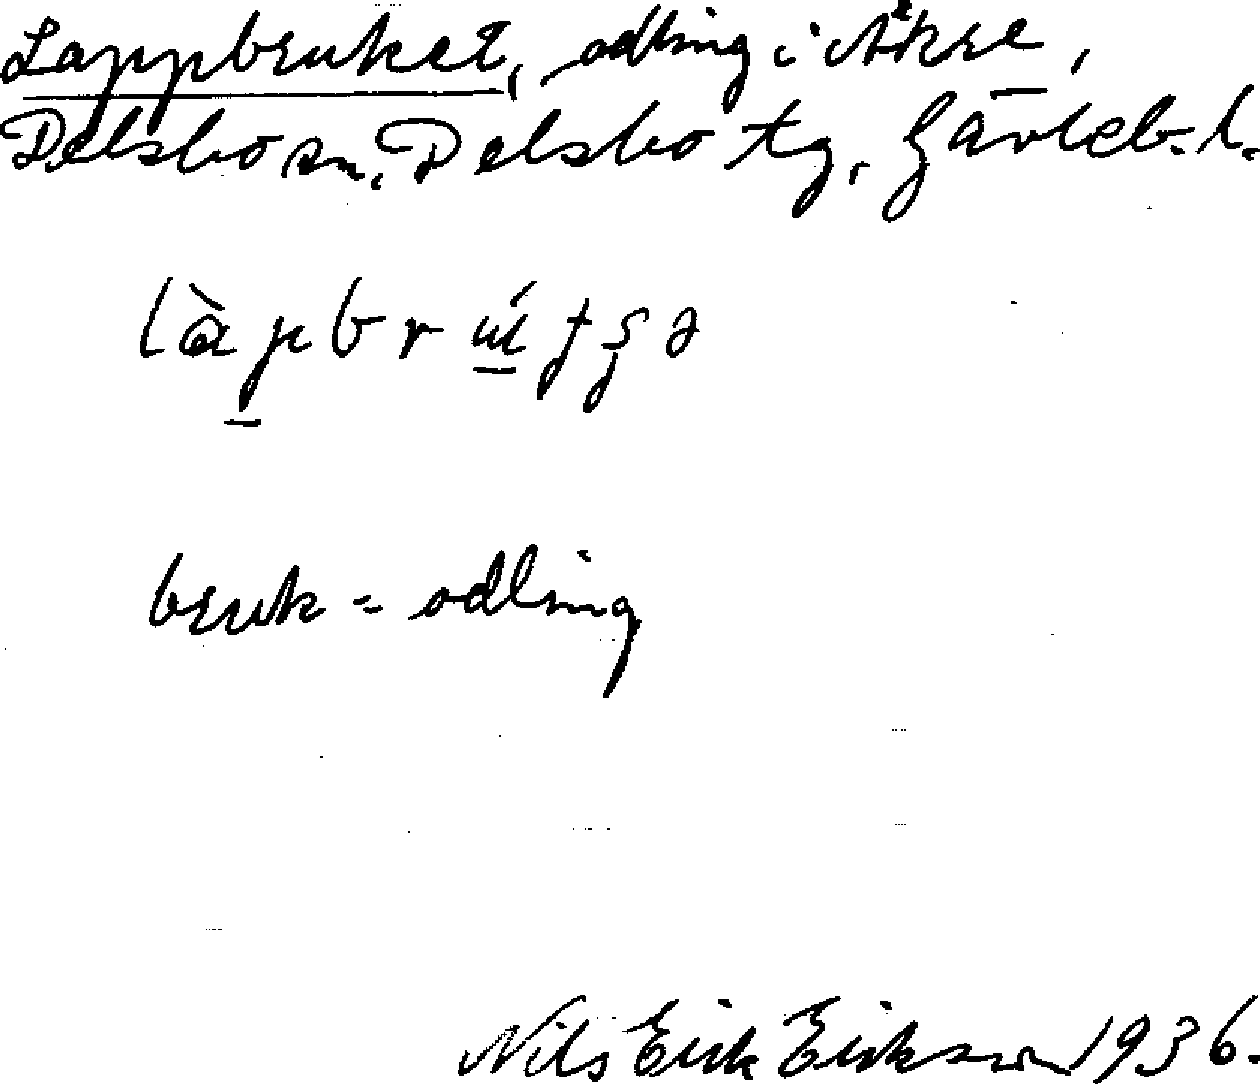 Lappbruket, odling i Åkre,
Delsbo sn, Delsbo tg, Gävleb. l.
bruk = odling
Nils Erik Erikson 1936.